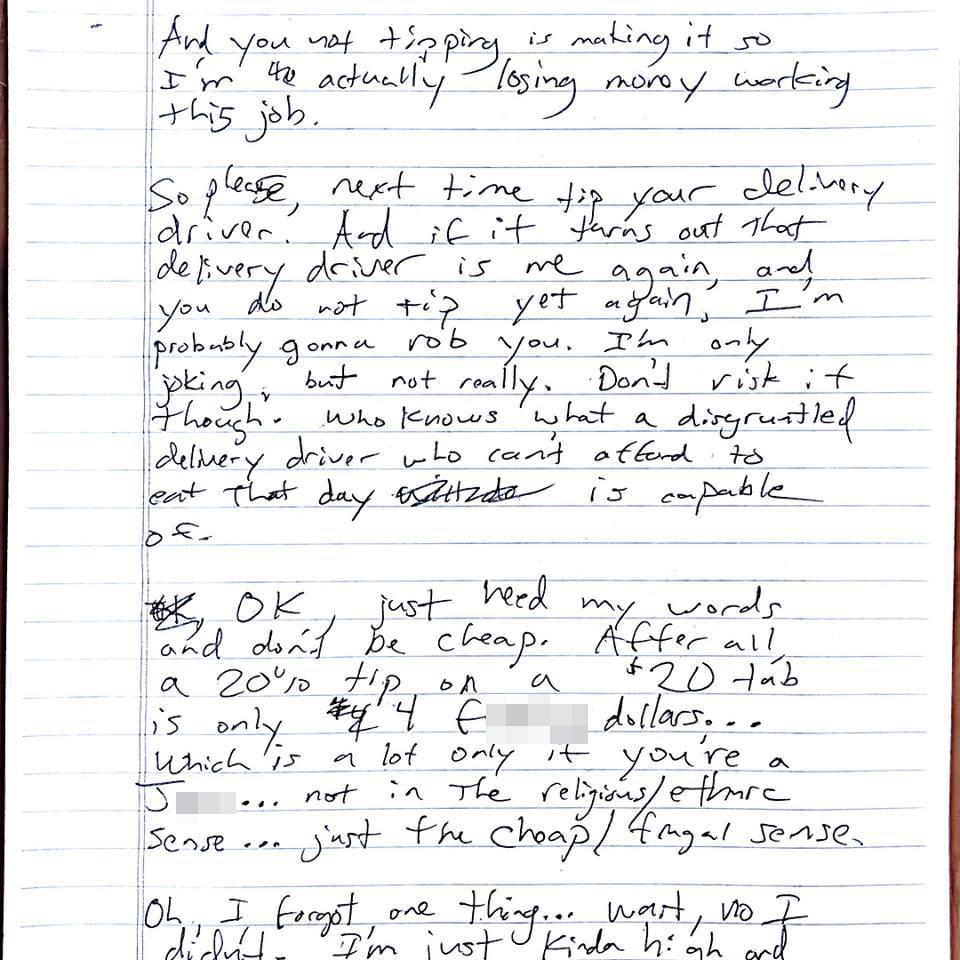 And you not tipping is making it so
I'm actually losing money working
this job.
So please, next time tip your delivery
driver. And if it turns out that
delivery driver is me again, and
you do not tip yet again, I'm
probably gonna rob you. I'm only
joking, but not really. Don't risk it
though. Who knows what a disgruntled
delivery driver who can't afford to
eat that day is capable
of.
OK, just heed my words
and don't be cheap. After all
a 20% tip on a $20 tab
is only 4 f dollars...
which is a lot only if you're a
J... not in the religious/ethnic
sense... just the cheap/frugal sense.
Oh, I forgot one thing... wait, no I
didn't. I'm just kinda high and